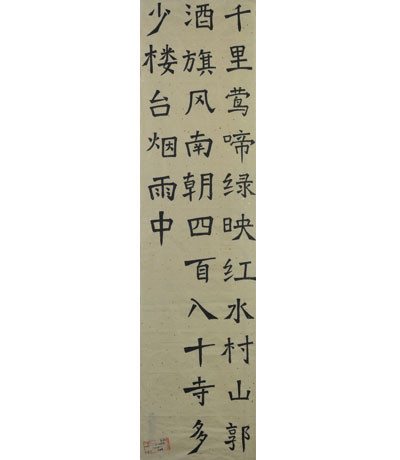 千里莺啼绿映红水村山郭
酒旗风南朝四百八十寺多
少楼台烟雨中